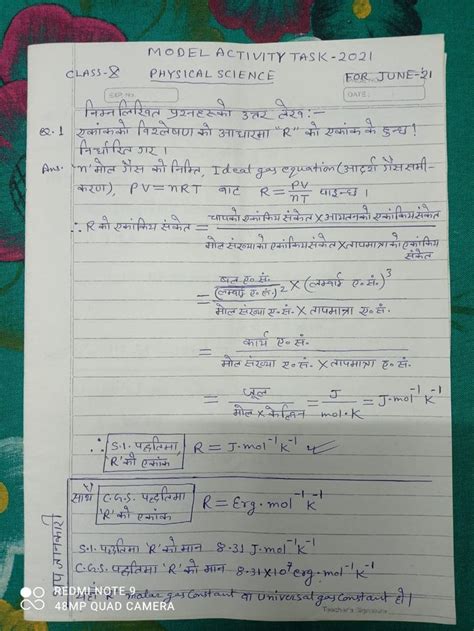 MODEL ACTIVITY TASK-2021
CLASS-8 PHYSICAL SCIENCE FOR JUNE-21
DATE:
निम्नलिखित प्रश्नहरूको उत्तर लेख:-
Q.1 एकांकको विश्लेषण को आधारमा "R" को एकांक के हुन्छ!
निर्धारित गर।
Ans. n मोल गैस को निम्ति, Ideal gas equation (आदर्श गैस समी-
करण), PV=nRT बाट R = PV/nT पाइन्छ।
∴ R को एकांकिय संकेत = चापको एकांकिय संकेत × आयतनको एकांकिय संकेत
मोल संख्याको एकांकिय संकेत × तापमात्राको एकांकिय
संकेत
= बल ए.सं./(लम्बाई ए.सं.)² × (लम्बाई ए.सं.)³
मोल संख्या ए.सं. × तापमात्रा ए.सं.
= कार्य ए.सं.
मोल संख्या ए.सं. × तापमात्रा ए.सं.
= जूल/मोल × केल्विन = J/mol.K = J.mol⁻¹K⁻¹
∴ S.I. पद्धतिमा 'R' को एकांक R = J.mol⁻¹K⁻¹
साथै C.G.S. पद्धतिमा 'R' को एकांक R = Erg.mol⁻¹K⁻¹
जानकारी
S.I. पद्धतिमा 'R' को मान 8.31 J.mol⁻¹K⁻¹
C.G.S. पद्धतिमा 'R' को मान 8.31×10⁷ erg.mol⁻¹K⁻¹
यहाँ 'R' molar gas constant वा universal gas constant हो।
Teacher's Signature
REDMI NOTE 9
48MP QUAD CAMERA